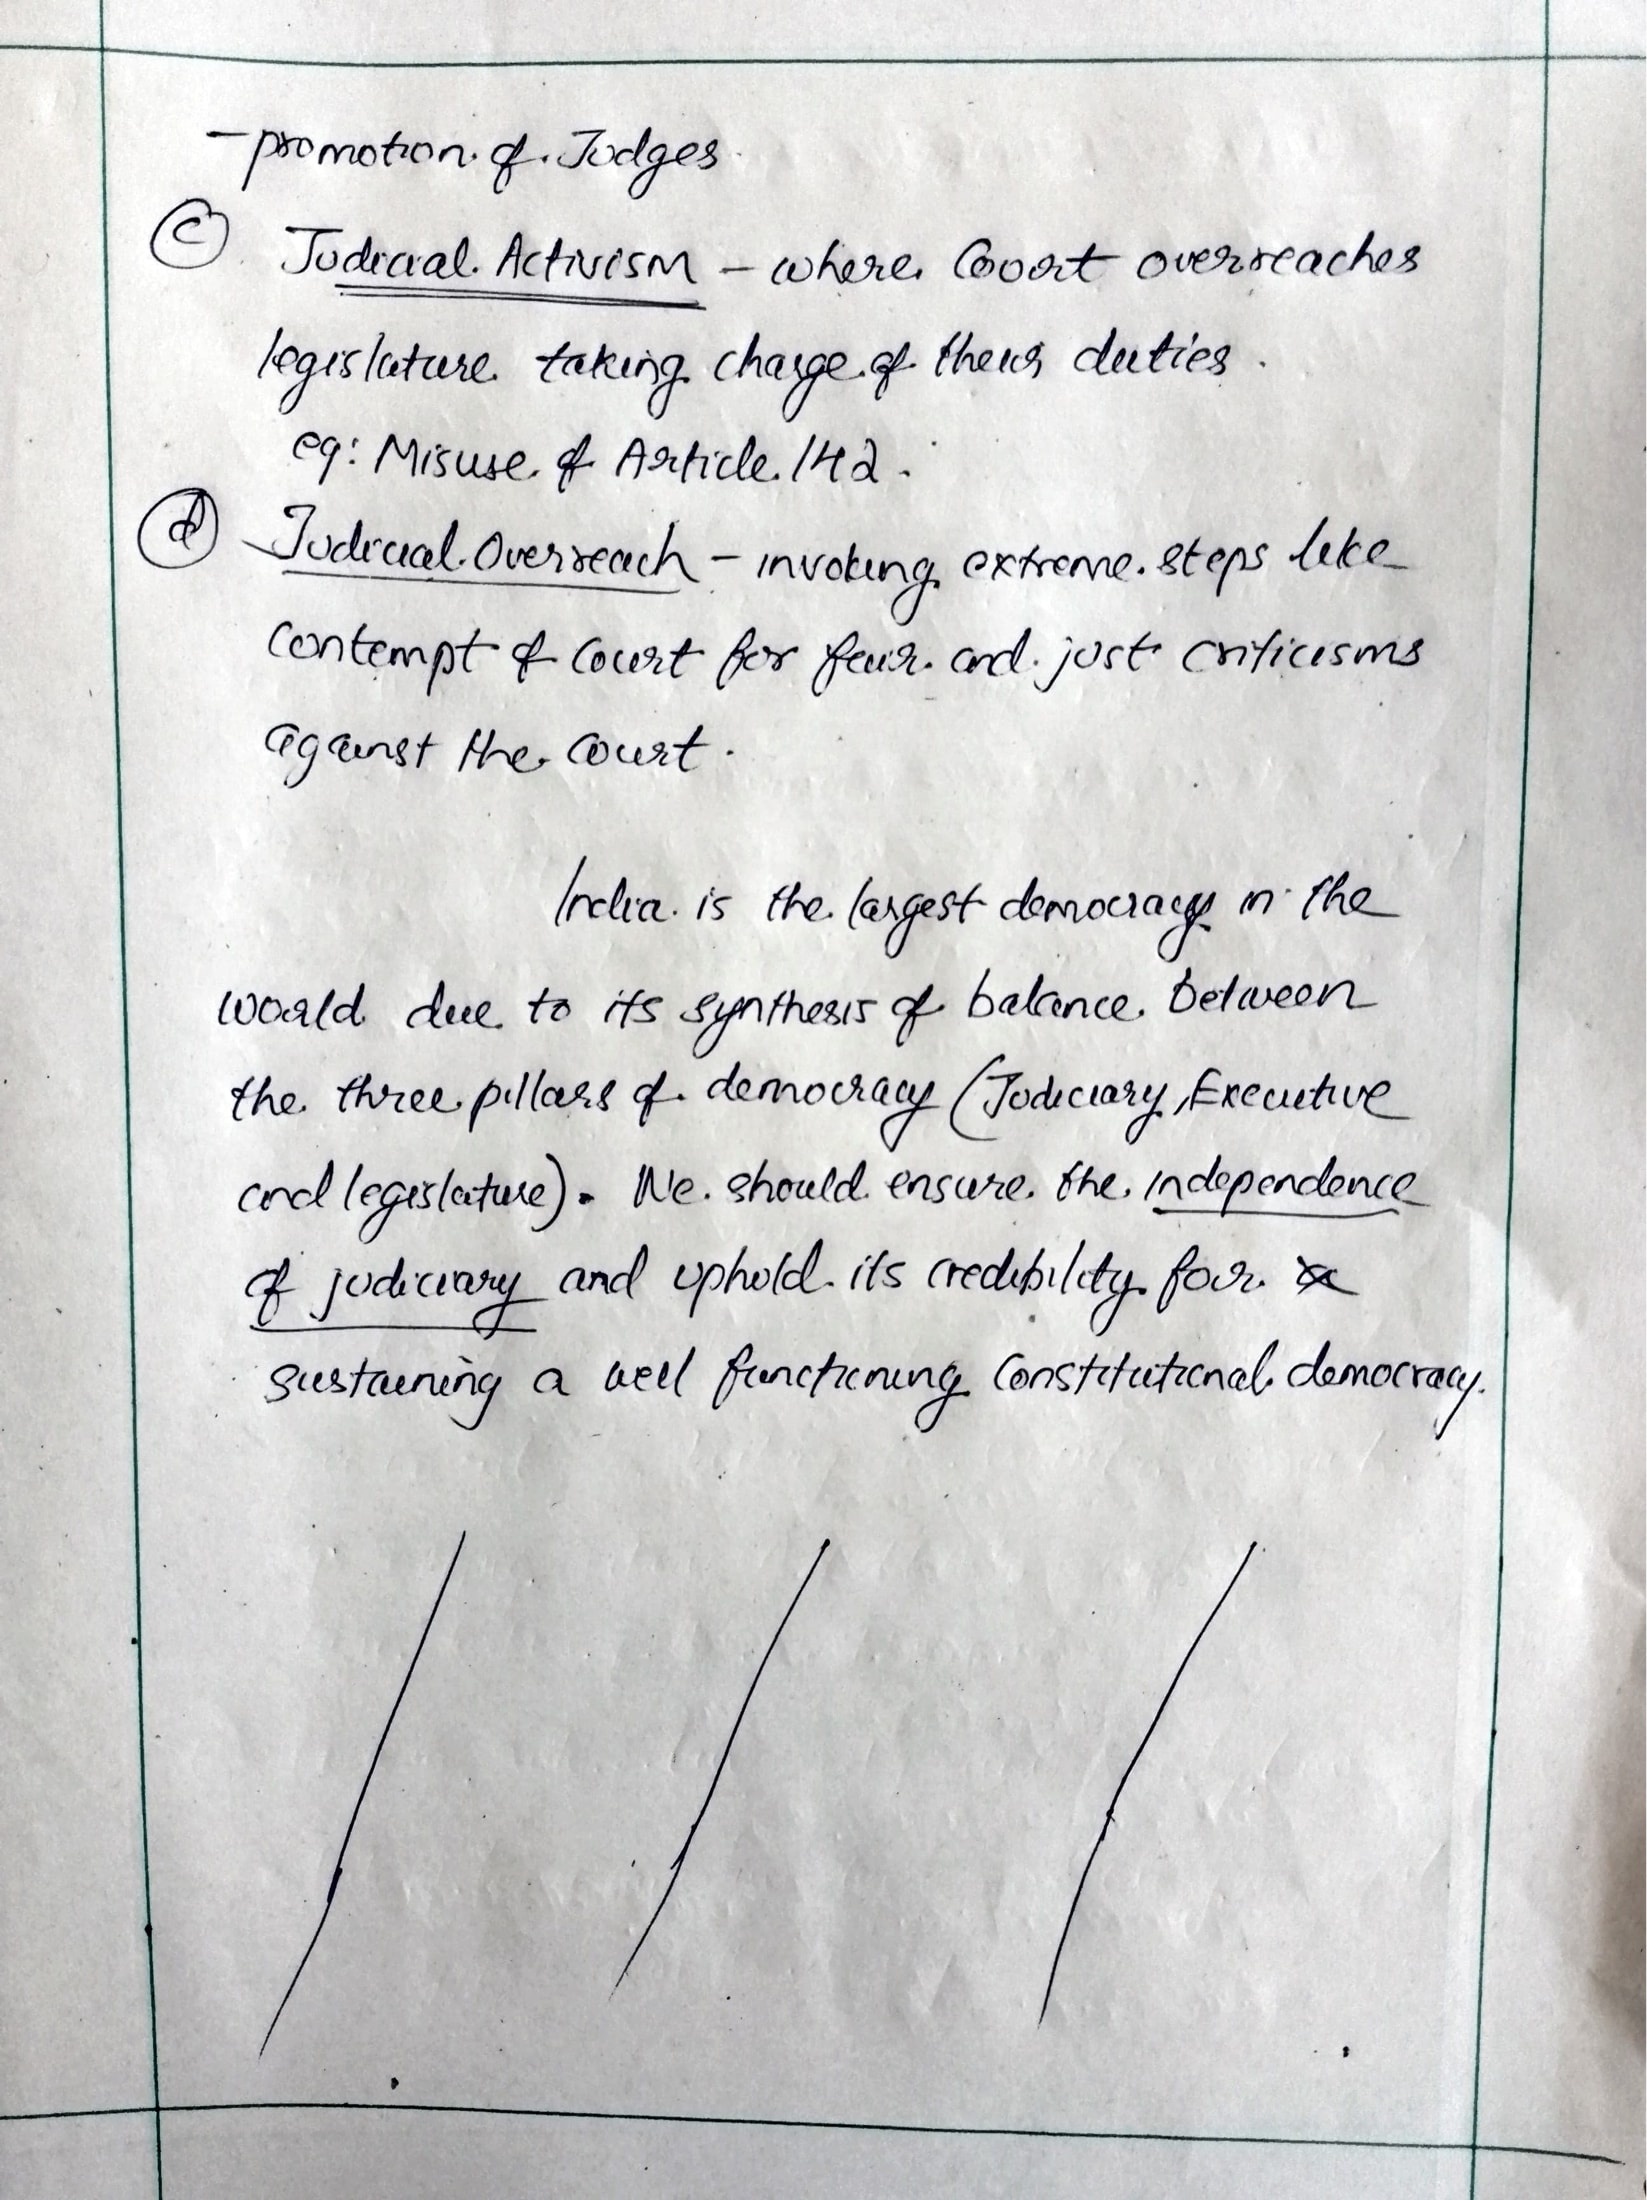 - promotion of Judges
(c) Judicial Activism - where Court overreaches
legislature taking charge of their duties.
eg: Misuse of Article 142.
(d) Judicial Overreach - invoking extreme steps like
contempt of court for fair and just criticisms
against the court.
India is the largest democracy in the
world due to its synthesis of balance between
the three pillars of democracy (Judiciary, Executive
and legislature). We should ensure the independence
of judiciary and uphold its credibility for
sustaining a well functioning Constitutional democracy.